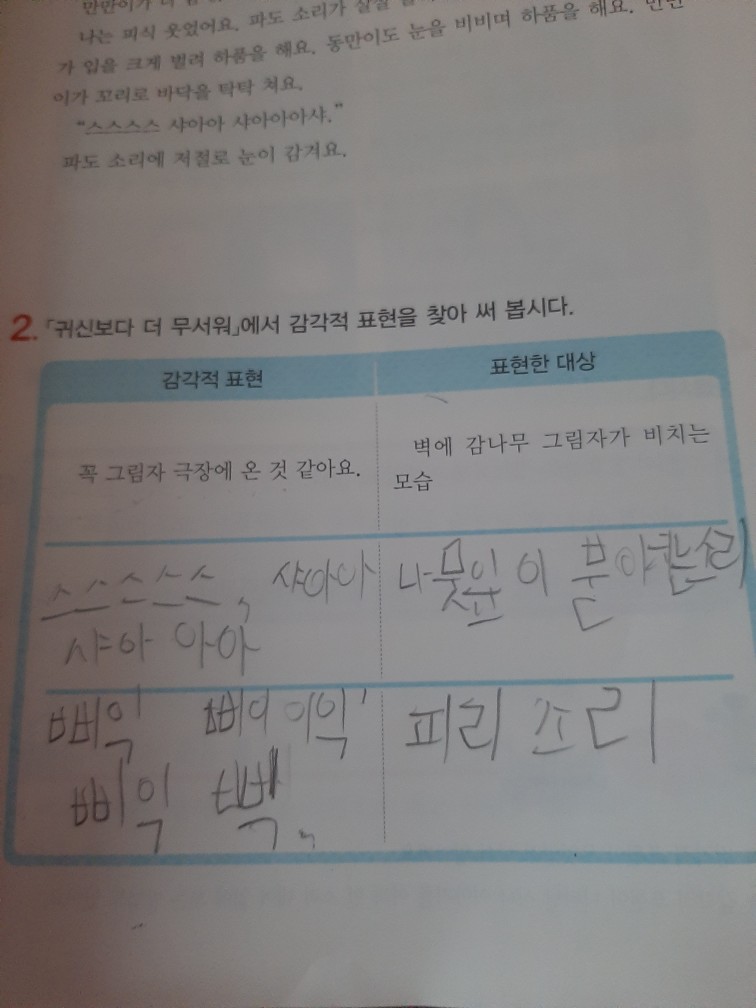 나는 피식 웃었어요. 파도 소리가
가 입을 크게 벌려 하품을 해요. 동만이도 눈을 비비며 하품을 해요.
이가 꼬리로 바닥을 탁탁 쳐요.
“스스스스 샤아아 샤아아아샤.”
파도 소리에 저절로 눈이 감겨요.
2. 「귀신보다 더 무서워」에서 감각적 표현을 찾아 써 봅시다.
감각적 표현
표현한 대상
꼭 그림자 극장에 온 것 같아요.
벽에 감나무 그림자가 비치는
모습
스스스스스, 샤아아
샤아 아아
나뭇잎이 소리
삐익 삐이 이익'
삐익
피리 소리